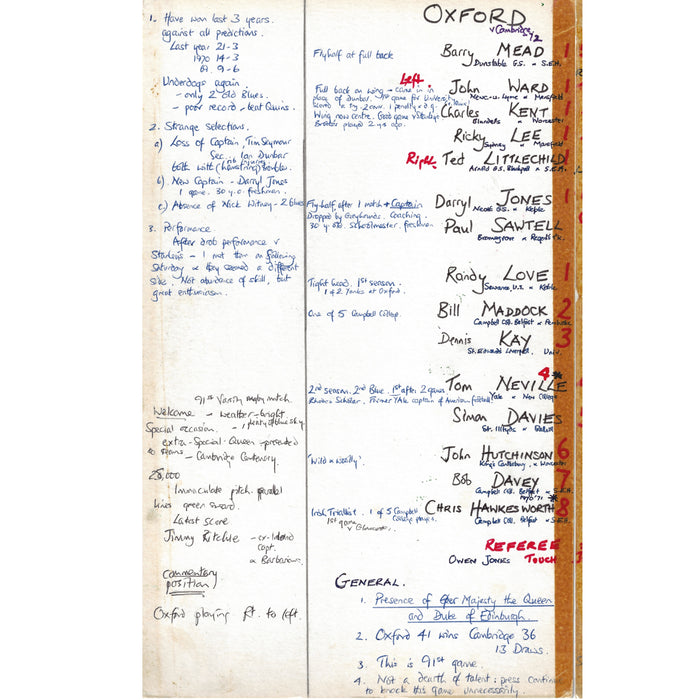 OXFORD
v Cambridge
1. Have won last 3 years.
against all predictions.
Last year 21-3
1970 14-3
69. 9-6
Underdogs again
- only 2 old Blues.
- poor record - beat Quins.
2. Strange selections.
a) Loss of Captain, Tim Seymour
Sec. Ian Dunbar
both with (hamstring) troubles.
b) New Captain - Darryl Jones
1 game. 30 y.o. freshman.
c) Absence of Nick Witney - 2 blues
3. Performance
After drab performance v
Stanleys - I met them on following
Saturday & they seemed a different
side. Not abundance of skill, but
great enthusiasm.
91st Varsity rugby match.
Welcome - weather - bright
- plenty of blue sky.
Special occasion.
extra-Special - Queen - presented
to teams - Cambridge Centenary.
Immaculate pitch. parallel
lines green sward.
Latest score
Jimmy Ritchie - ex-Ireland
Capt.
& Barbarian
commentary
position
Oxford playing rt. to left.
Fly half at full back
Barry MEAD 1
Dunstable G.S. & S.E.H.
Left.
Full back on wing - came in in
place of Dunbar. 1st game for University
John WARD 1
Newc-u-Lyme & Mansfield
Wing now centre. Good game v Stanleys
Brother played 2 yrs ago.
Charles KENT 1
Blundells & Worcester
Ricky LEE 1
Sydney & Mansfield
Right. Ted LITTLECHILD 1
Arnold G.S. Blackpool & S.E.H.
Fly half after 1 match & Captain
Dropped by Greyhounds. Coaching.
30 y. old. Schoolmaster, freshman
Darryl JONES 1
Neath G.S. & Keble
Paul SAWTELL
Bromsgrove &
Tight head. 1st season.
1 of 2 Yanks at Oxford.
Randy LOVE 1
Sewanee, U.S. & Keble
One of 5 Campbell College.
Bill MADDOCK 2
Campbell Coll. Belfast & Pembroke
Dennis KAY 3
St. Edwards Liverpool. Univ.
2nd season. 2nd Blue. 1st after 2 games
Rhodes Scholar. Former YALE captain of American football
4 *
Tom NEVILLE
Yale & New College
Simon DAVIES 5
St. Illtyds & Balliol
'Wild & Woolly'
John HUTCHINSON 6
King's Canterbury. & Worcester
Bob DAVEY 7
Campbell Coll. Belfast & S.E.H.
Irish Triallist. 1 of 5 Campbell
College players.
1st game
v Gloucester.
CHRIS HAWKESWORTH 8
Campbell Coll. Belfast & S.E.H.
REFEREE
OWEN JONES TOUCH
GENERAL.
1. Presence of Her Majesty the Queen
and Duke of Edinburgh.
2. Oxford 41 wins Cambridge 36
13 Draws.
3. This is 91st game.
4. Not a dearth of talent: press continue
to knock this game unnecessarily.